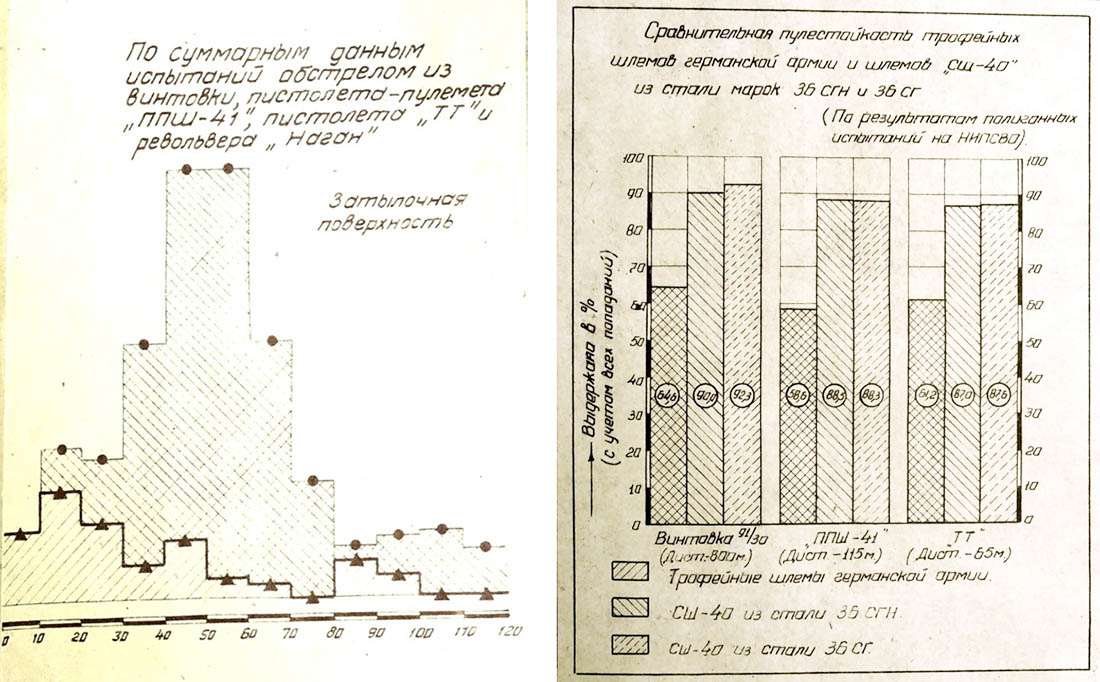 По суммарным данным
испытаний обстрелом из
винтовки, пистолета-пулемета
„ППШ-41", пистолета „ТТ" и
револьвера „Наган"
Затылочная
поверхность
0 10 20 30 40 50 60 70 80 90 100 110 120
Сравнительная пулестойкость трофейных
шлемов германской армии и шлемов „СШ-40"
из стали марок 36 СГН и 36 СГ
(По результатам полигонных
испытаний на НИПСВО).
100 100
90 90
80 80
70 70
60 60
50 50
40 40
30 30
20 20
10 10
0 0
Выдержала в %
(с учетом всех попаданий)
64,6 90,0 92,3 58,6 88,3 88,3 61,2 87,0 87,6
Винтовка 91/30 „ППШ-41" „ТТ"
(Дист.-800м.) (Дист.-115м.) (Дист.-65м.)
Трофейные шлемы германской армии.
СШ-40 из стали 36 СГН.
СШ-40 из стали 36 СГ.